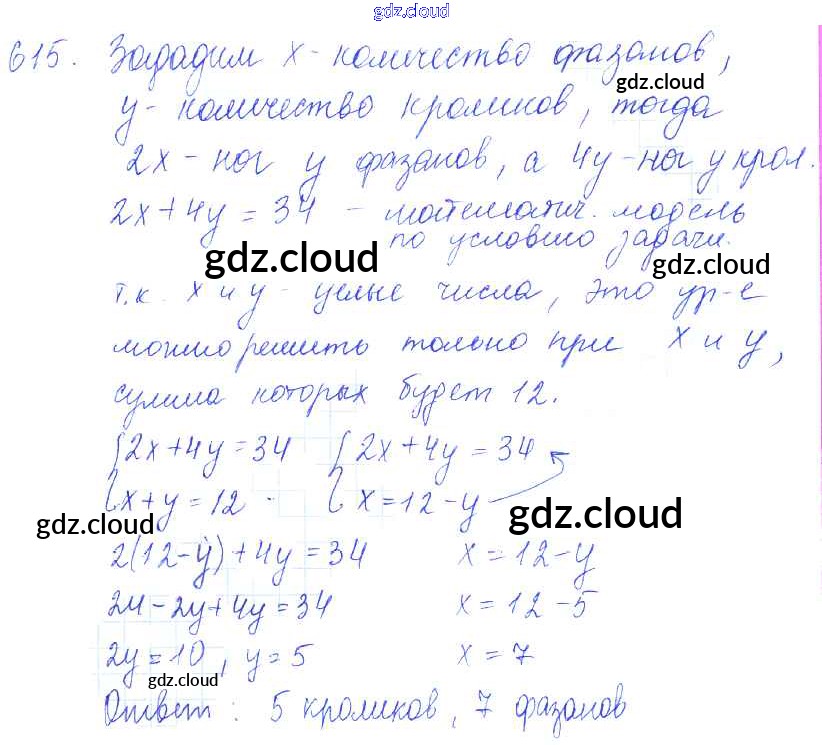 gdz.cloud
615. Зададим x - количество фазанов,
gdz.cloud
y - количество кроликов, тогда
2x - ног у фазанов, а 4y - ног у крол.
2x + 4y = 34 - математич. модель
по условию задачи.
gdz.cloud
gdz.cloud
т.к. x и y - целые числа, это ур-е
можно решить только при x и y,
сумма которых будет 12.
{2x + 4y = 34 {2x + 4y = 34
{x + y = 12 . {x = 12 - y
gdz.cloud
gdz.cloud
2(12 - y) + 4y = 34 x = 12 - y
24 - 2y + 4y = 34 x = 12 - 5
2y = 10, y = 5 x = 7
gdz.cloud
Ответ: 5 кроликов, 7 фазанов